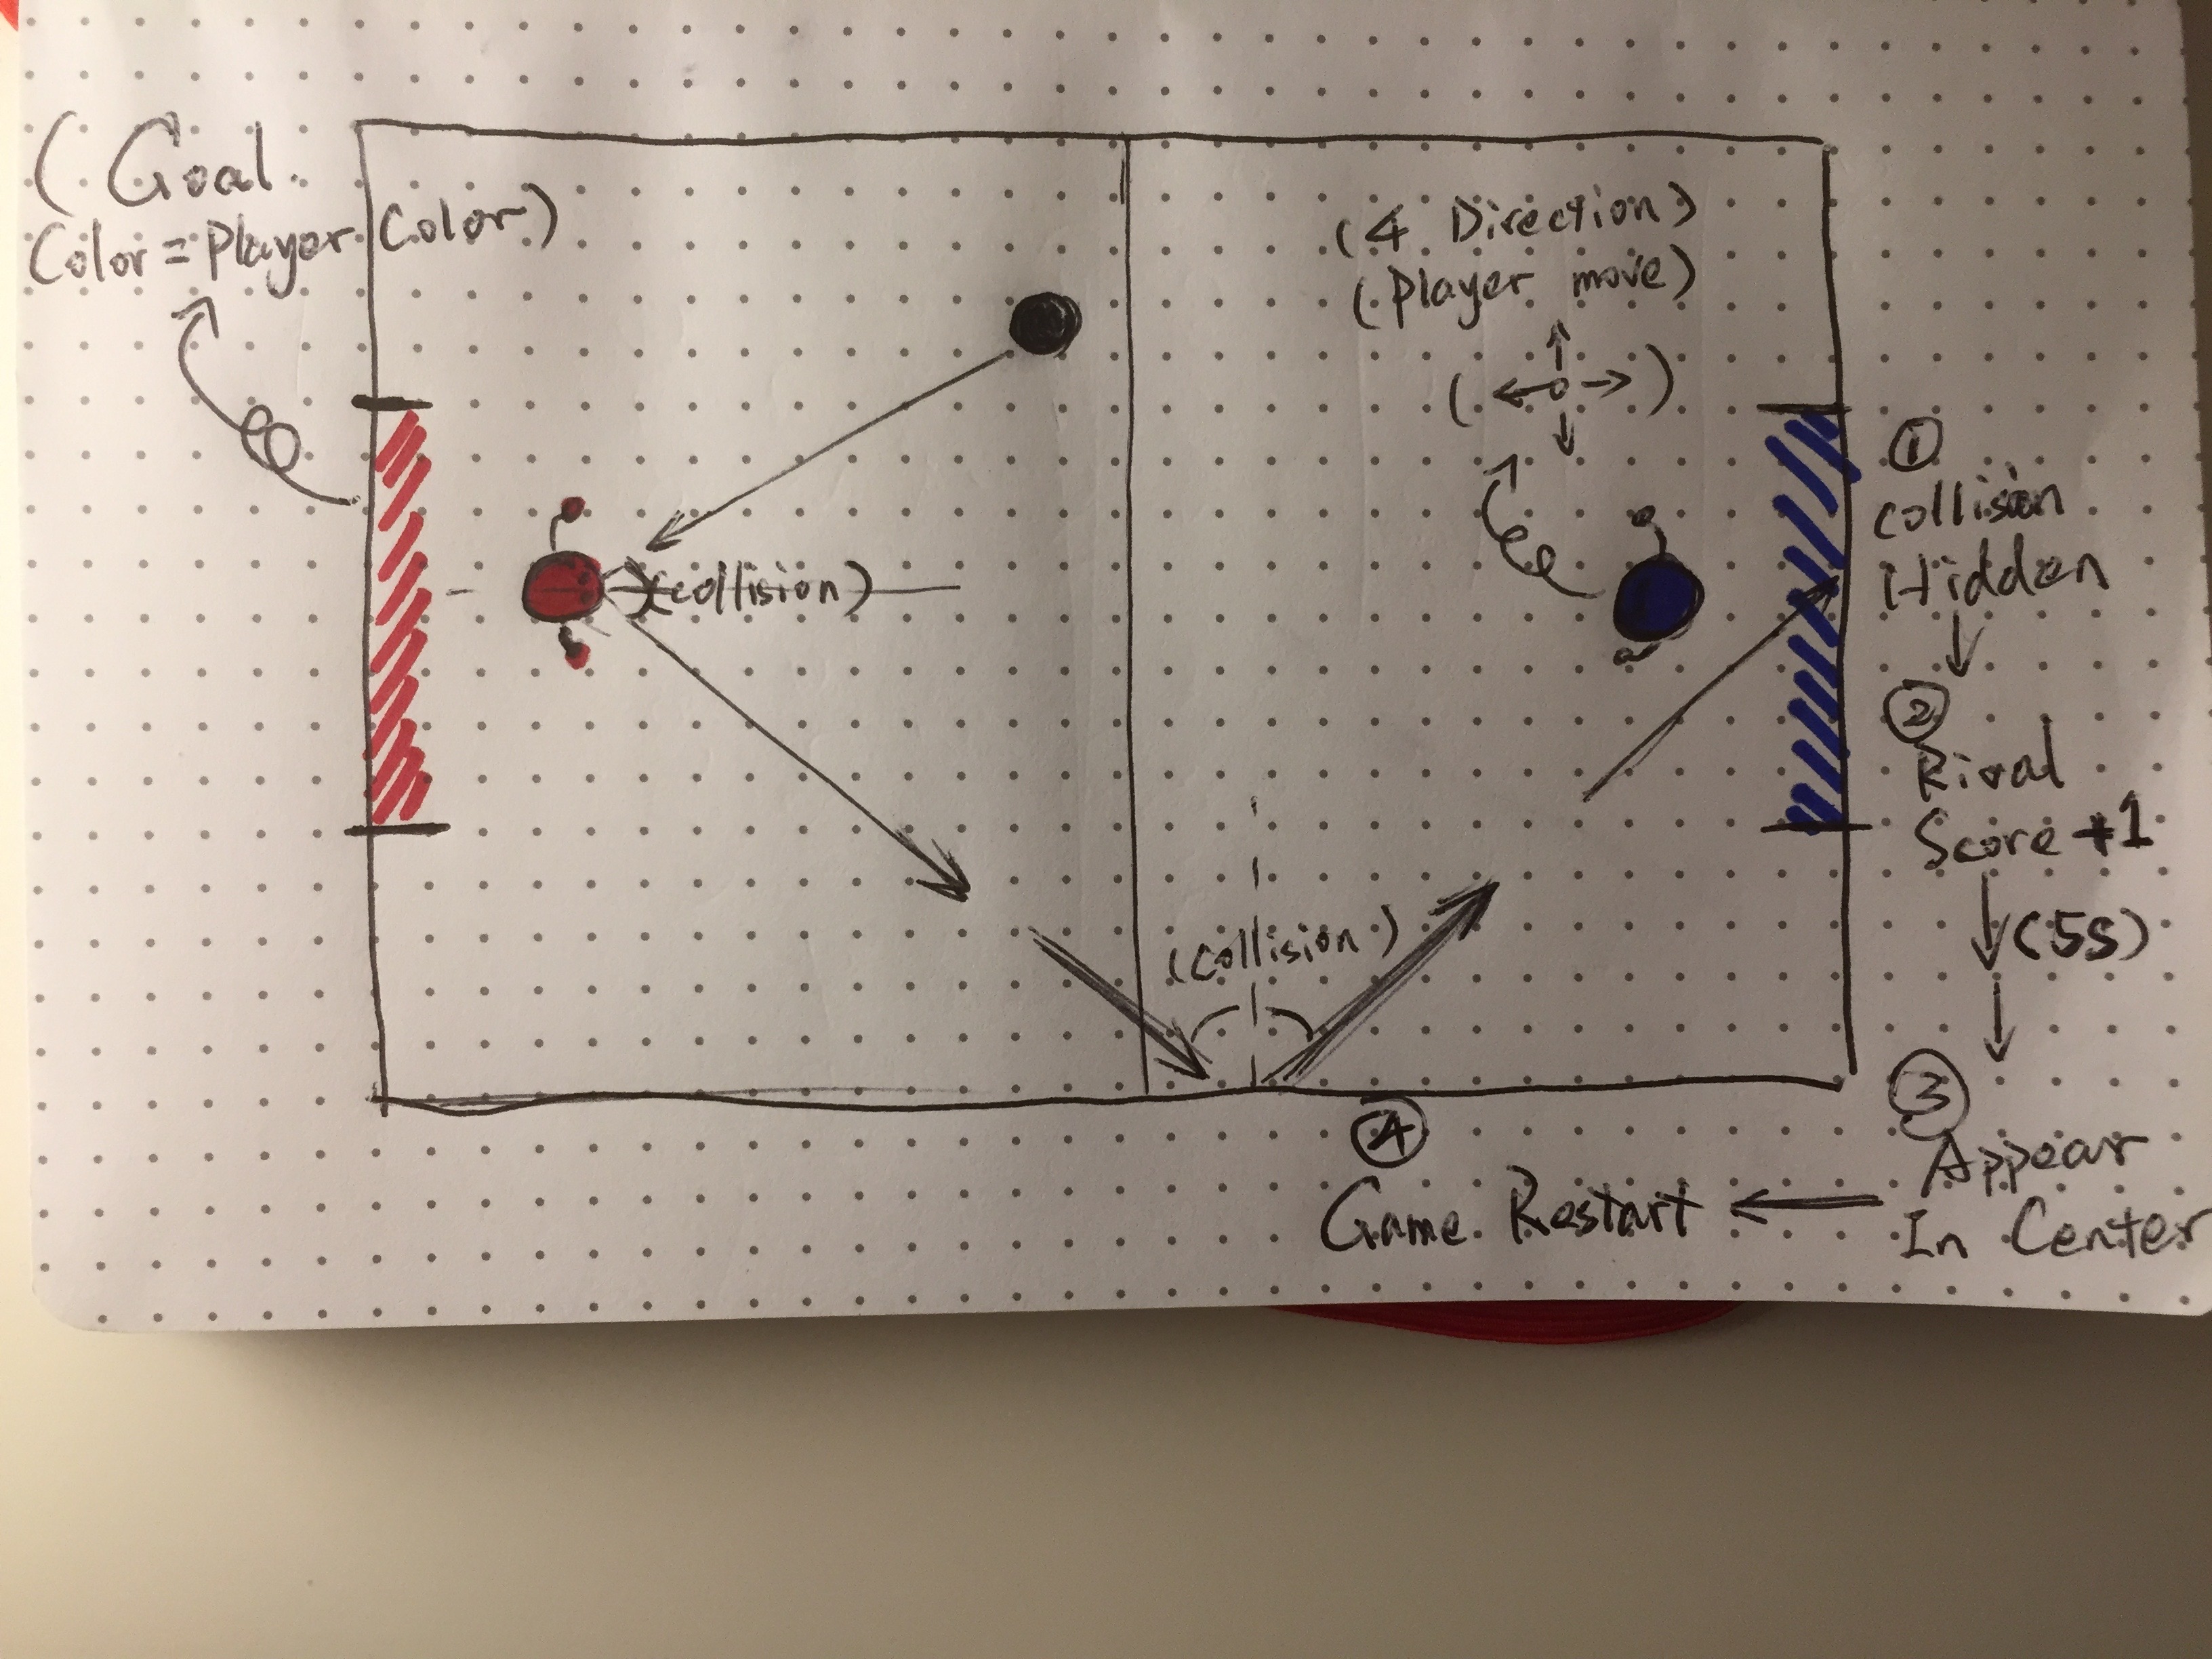 (Goal
Color = Player Color)
(4 Direction)
(Player move)
(collision)
(collision)
①
Collision
Hidden
②
Rival
Score +1
(5S)
③
Appear
In Center
④
Game Restart